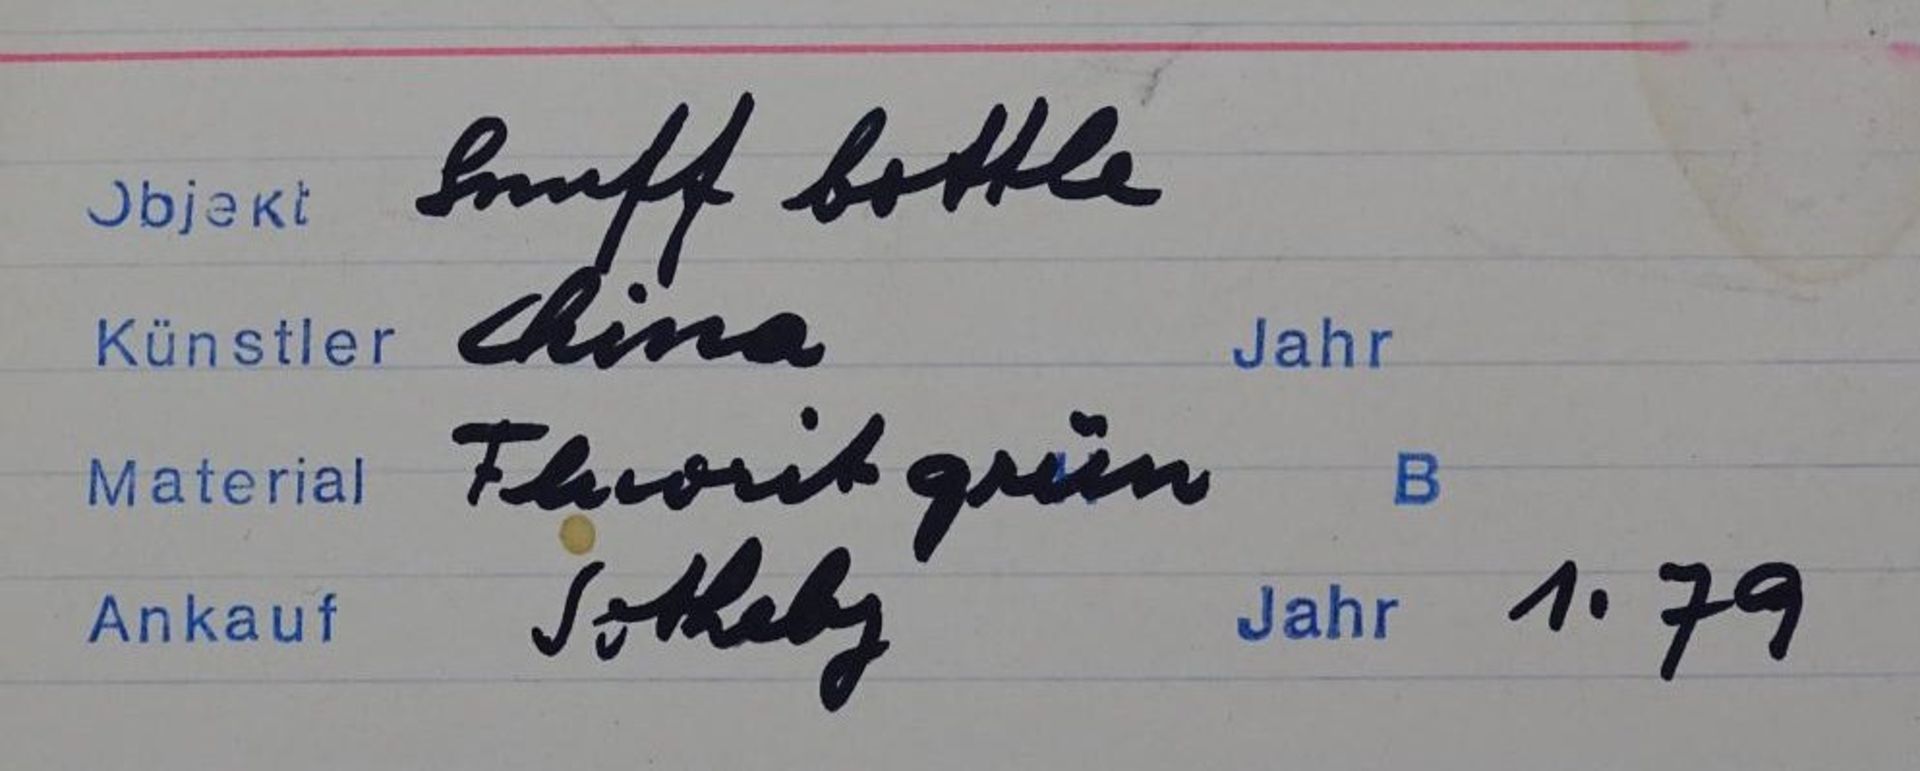 Objekt Snuff bottle
Künstler China Jahr
Material Fluorit grün B
Ankauf Sotheby Jahr 1.79